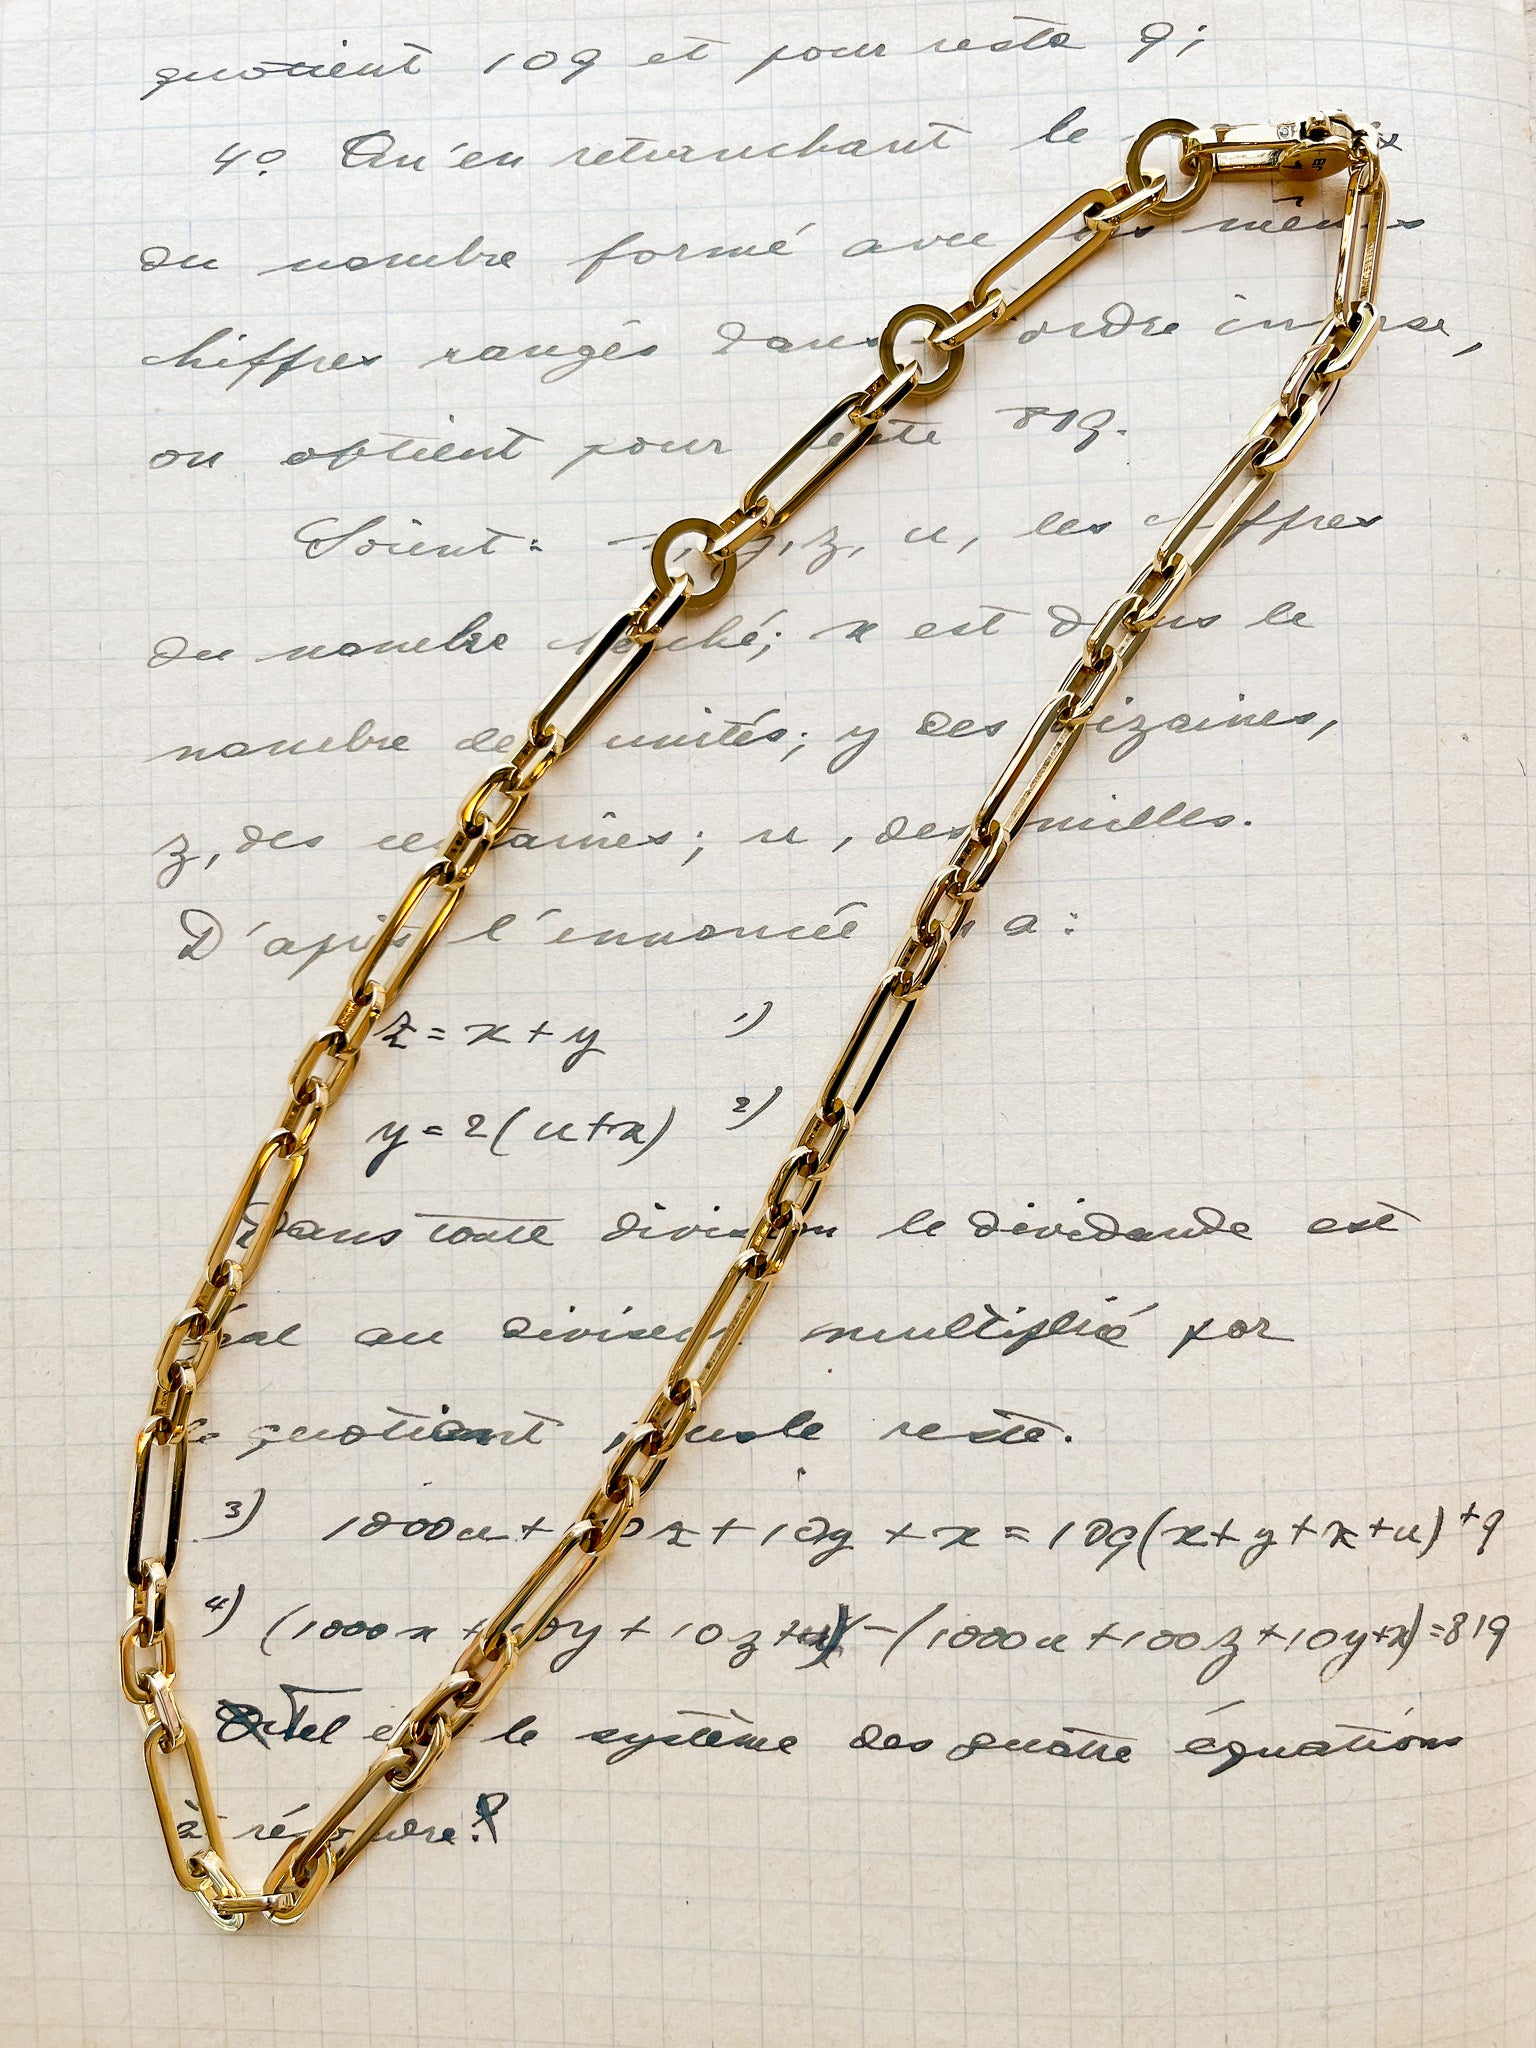 quotient 109 et pour reste 9;
4º. Qu'en retranchant le
du nombre formé avec les mêmes
chiffres rangés dans ordre inverse,
on obtient pour reste 819.
Soient: y, z, u, les chiffres
du nombre cherché; x est dans le
nombre des unités; y des dizaines,
z, des centaines; u, des milles.
D'après l'ennoncée on a:
z = x + y 1)
y = 2(u+x) 2)
Dans toute division le dividande est
égal au diviseur multiplié par
le quotient plus le reste.
3) 1000u + 100z + 10y + x = 109(x+y+z+u)+9
4) (1000x + 100y + 10z+u) - (1000u+100z+10y+x)=819
Tel est le système des quatre équations
à résoudre: